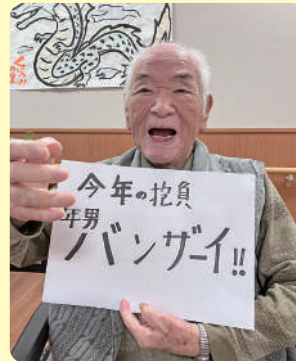 今年の抱負
年男
バンザーイ!!